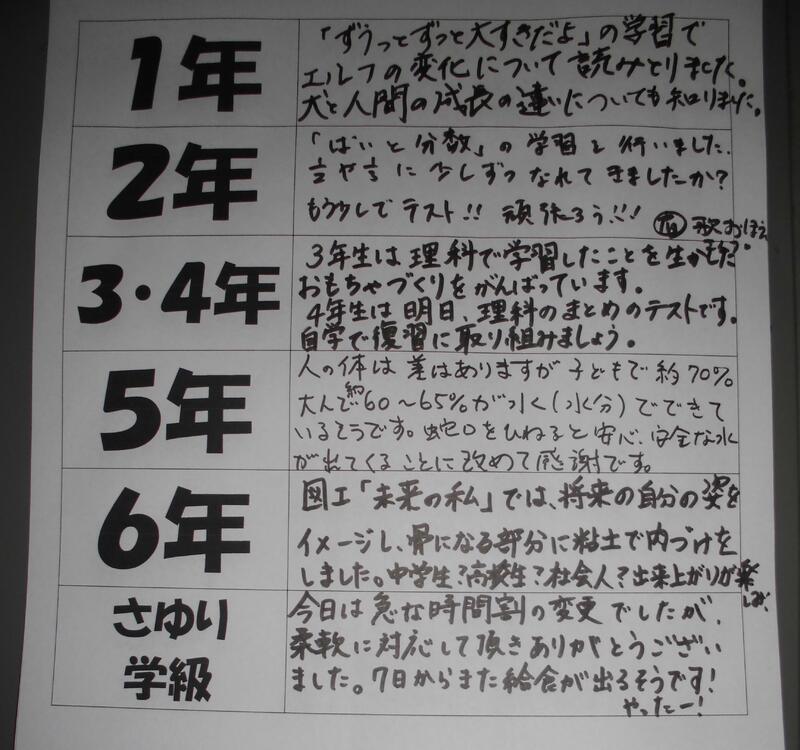 1年
「ずうっとずっと大すきだよ」の学習で
エルフの変化について読みとりました。
犬と人間の成長の違いについても知りました。
2年
「ばいと分数」の学習を行いました。
に少しずつなれてきましたか?
もう少しでテスト!! 頑張ろう!!!
歌おぼえ
3・4年
3年生は理科で学習したことを生かした
おもちゃづくりをがんばっています。
4年生は明日、理科のまとめのテストです。
自学で復習に取り組みましょう。
5年
人の体は差はありますが子どもで約70%
大人で約60~65%が水(水分)でできて
いるそうです。蛇口をひねると安心、安全な水
が出てくることに改めて感謝です。
6年
図工「未来の私」では、将来の自分の姿を
イメージし、骨になる部分に粘土で肉づけを
しました。中学生?高校生?社会人?出来上がりが楽
しみ。
さゆり
学級
今日は急な時間割の変更でしたが、
柔軟に対応して頂きありがとうござい
ました。7日からまた給食が出るそうです!
やったー!